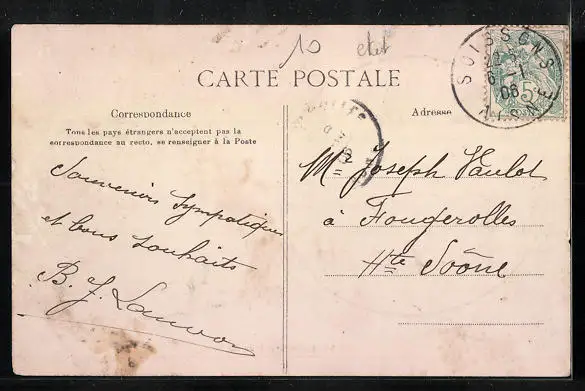 10 etet
CARTE POSTALE
Correspondance
Tous les pays étrangers n'acceptent pas la
correspondance au recto, se renseigner à la Poste
Souvenirs Sympatiques
et bons souhaits
B. J.
Adresse
Mr Joseph Vaulot
à Fougerolles
Hte Soône
SOISSONS
6-1
06
AISNE
5c